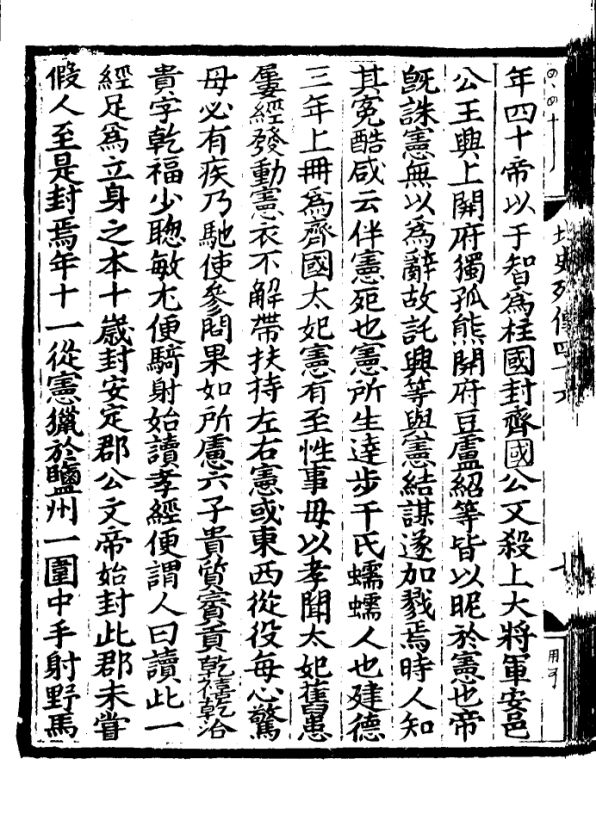 年四十帝以于智爲柱國封齊國公又殺上大將軍安邑
公王興上開府獨孤熊開府豆盧紹等皆以昵於憲也帝
旣誅憲無以爲辭故託興等與憲結謀遂加戮焉時人知
其冤酷咸云伴憲死也憲所生達步干氏蠕蠕人也建德
三年上冊爲齊國太妃憲有至性事母以孝聞太妃舊患
屢經發動憲衣不解帶扶持左右憲或東西從役每心驚
母必有疾乃馳使參問果如所慮六子貴質賓貢乾禧乾洽
貴字乾福少聰敏尤便騎射始讀孝經便謂人曰讀此一
經足爲立身之本十歲封安定郡公文帝始封此郡未嘗
假人至是封焉年十一從憲獵於鹽州一圍中手射野馬